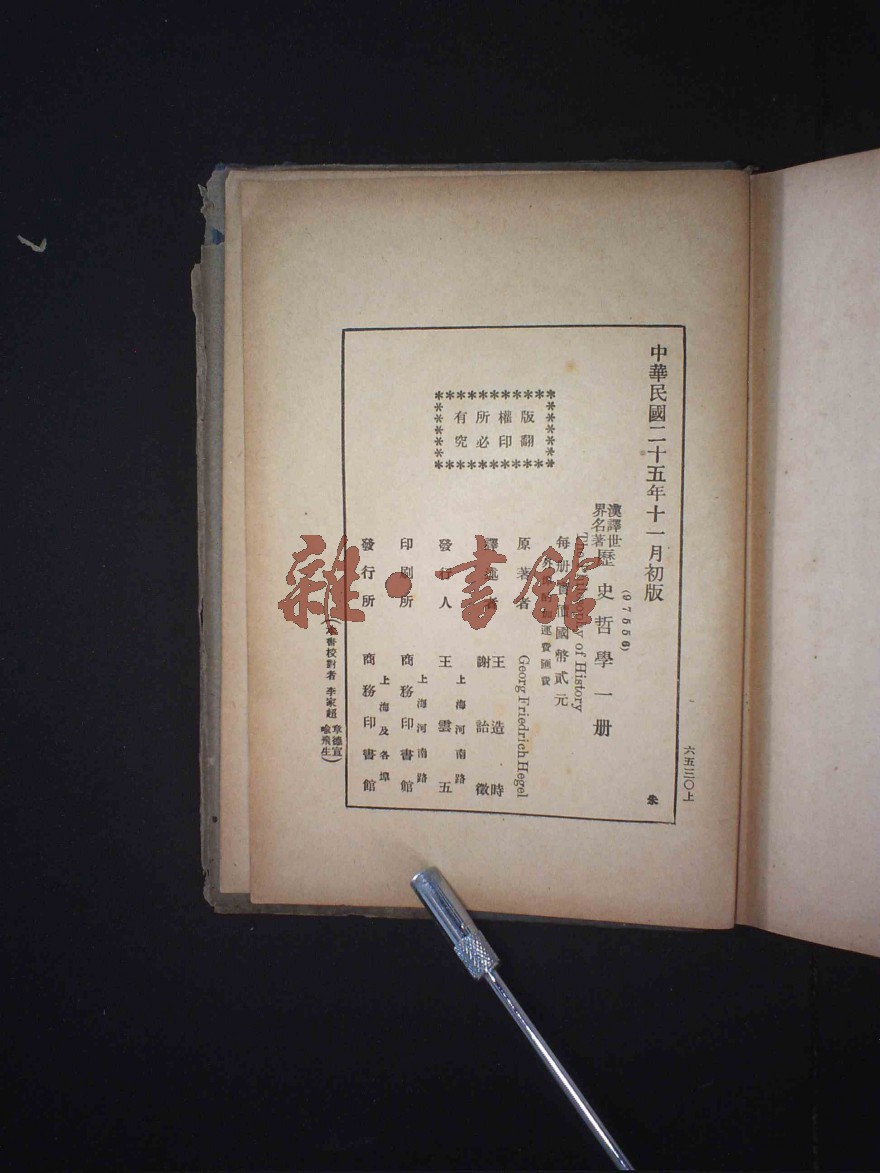 六五三〇上
中華民國二十五年十一月初版
朱
(97556)
漢譯世界名著
歷史哲學一册
The Philosophy of History
每册實價國幣貳元
外埠酌加運費匯費
版權所有
翻印必究
原著者 Georg Friedrich Hegel
譯述者 王造時 謝詒徵
發行人 王雲五
上海河南路
印刷所 商務印書館
上海河南路
發行所 商務印書館
上海及各埠
(本書校對者 李家超 章德宣 喻飛生)
雜·書館